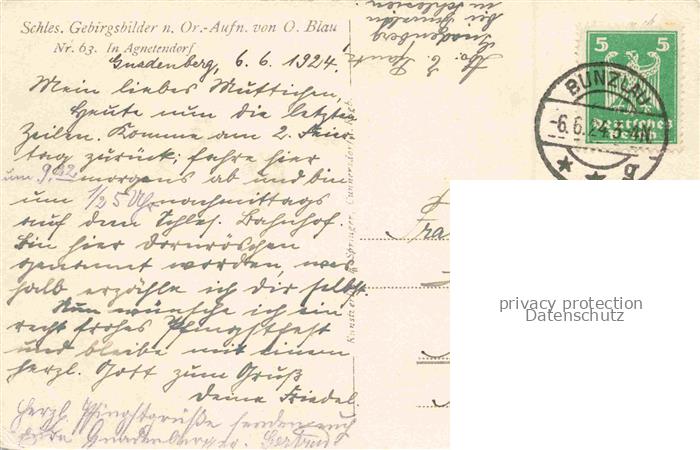 Schles. Gebirgsbilder n. Or.-Aufn. von O. Blau
Nr. 63. In Agnetendorf
Gnadenberg, 6. 6. 1924.
Mein liebes Muttichen,
Heute nun die letzten
Zeilen. Komme am 2. Feier-
tag zurück; fahre hier
um 9,32 morgens ab und bin
um 1/2 5 Uhr nachmittags
auf dem Schles. Bahnhof.
Bin hier Dornröschen
genannt worden, wes-
halb erzähle ich dir selbst.
Nun wünsche ich ein
recht frohes Pfingstfest
und bleibe mit einem
herzl. Gott zum Gruß
Deine Friedel.
Herzl. Pfingstgrüße senden euch
Gertrud
Gnadenberg
bei Bunzlau
in Schlesien
5 5
Deutsches Reich
BUNZLAU
-6.6.24.3-4N.
Fra
privacy protection
Datenschutz